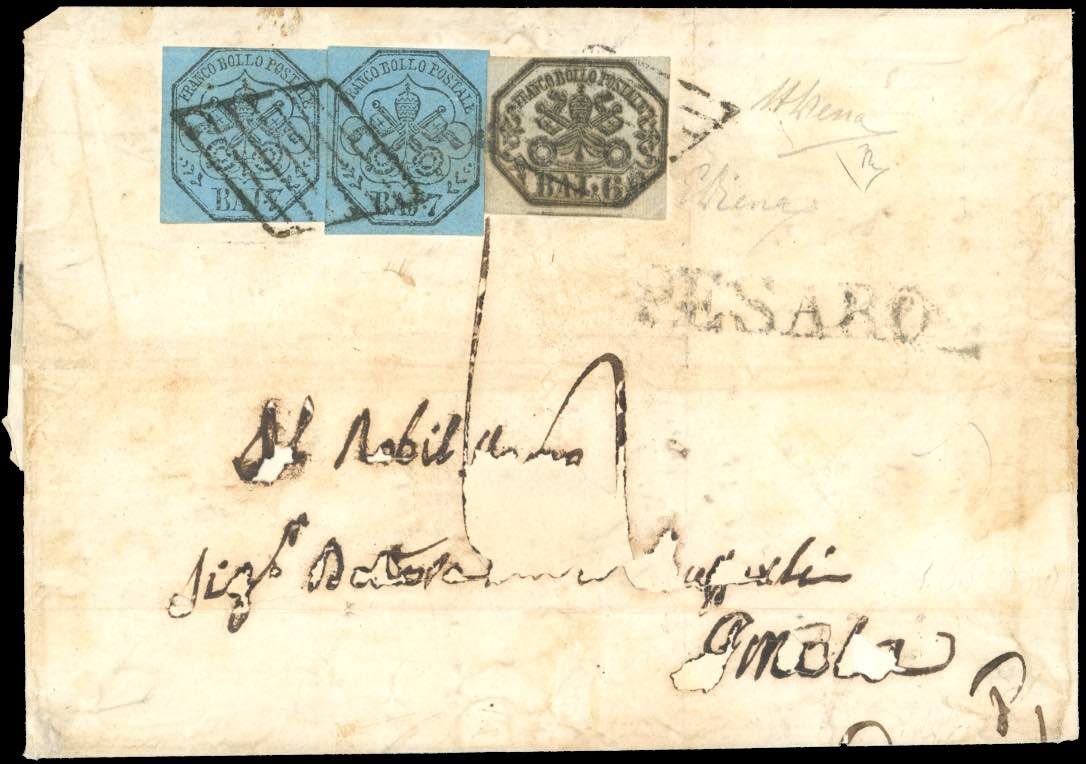 FRANCO BOLLO POSTALE
BAJ. 7
FRANCO BOLLO POSTALE
BAJ. 7
FRANCO BOLLO POSTALE
BAJ. 6
ADiena
EDiena
PESARO
Al Nobil Uomo
Sigr
Imola
P